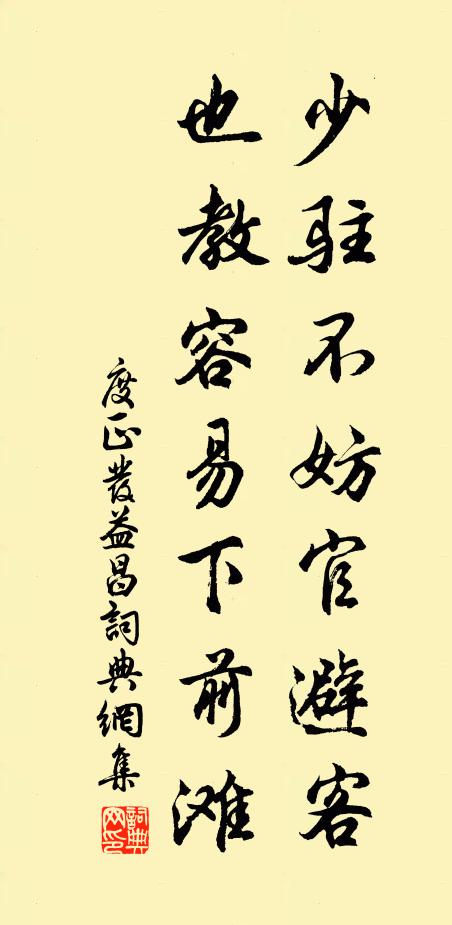 少驻不妨官避客
也教容易下前滩
度正發益昌詞典網集
詞典网印